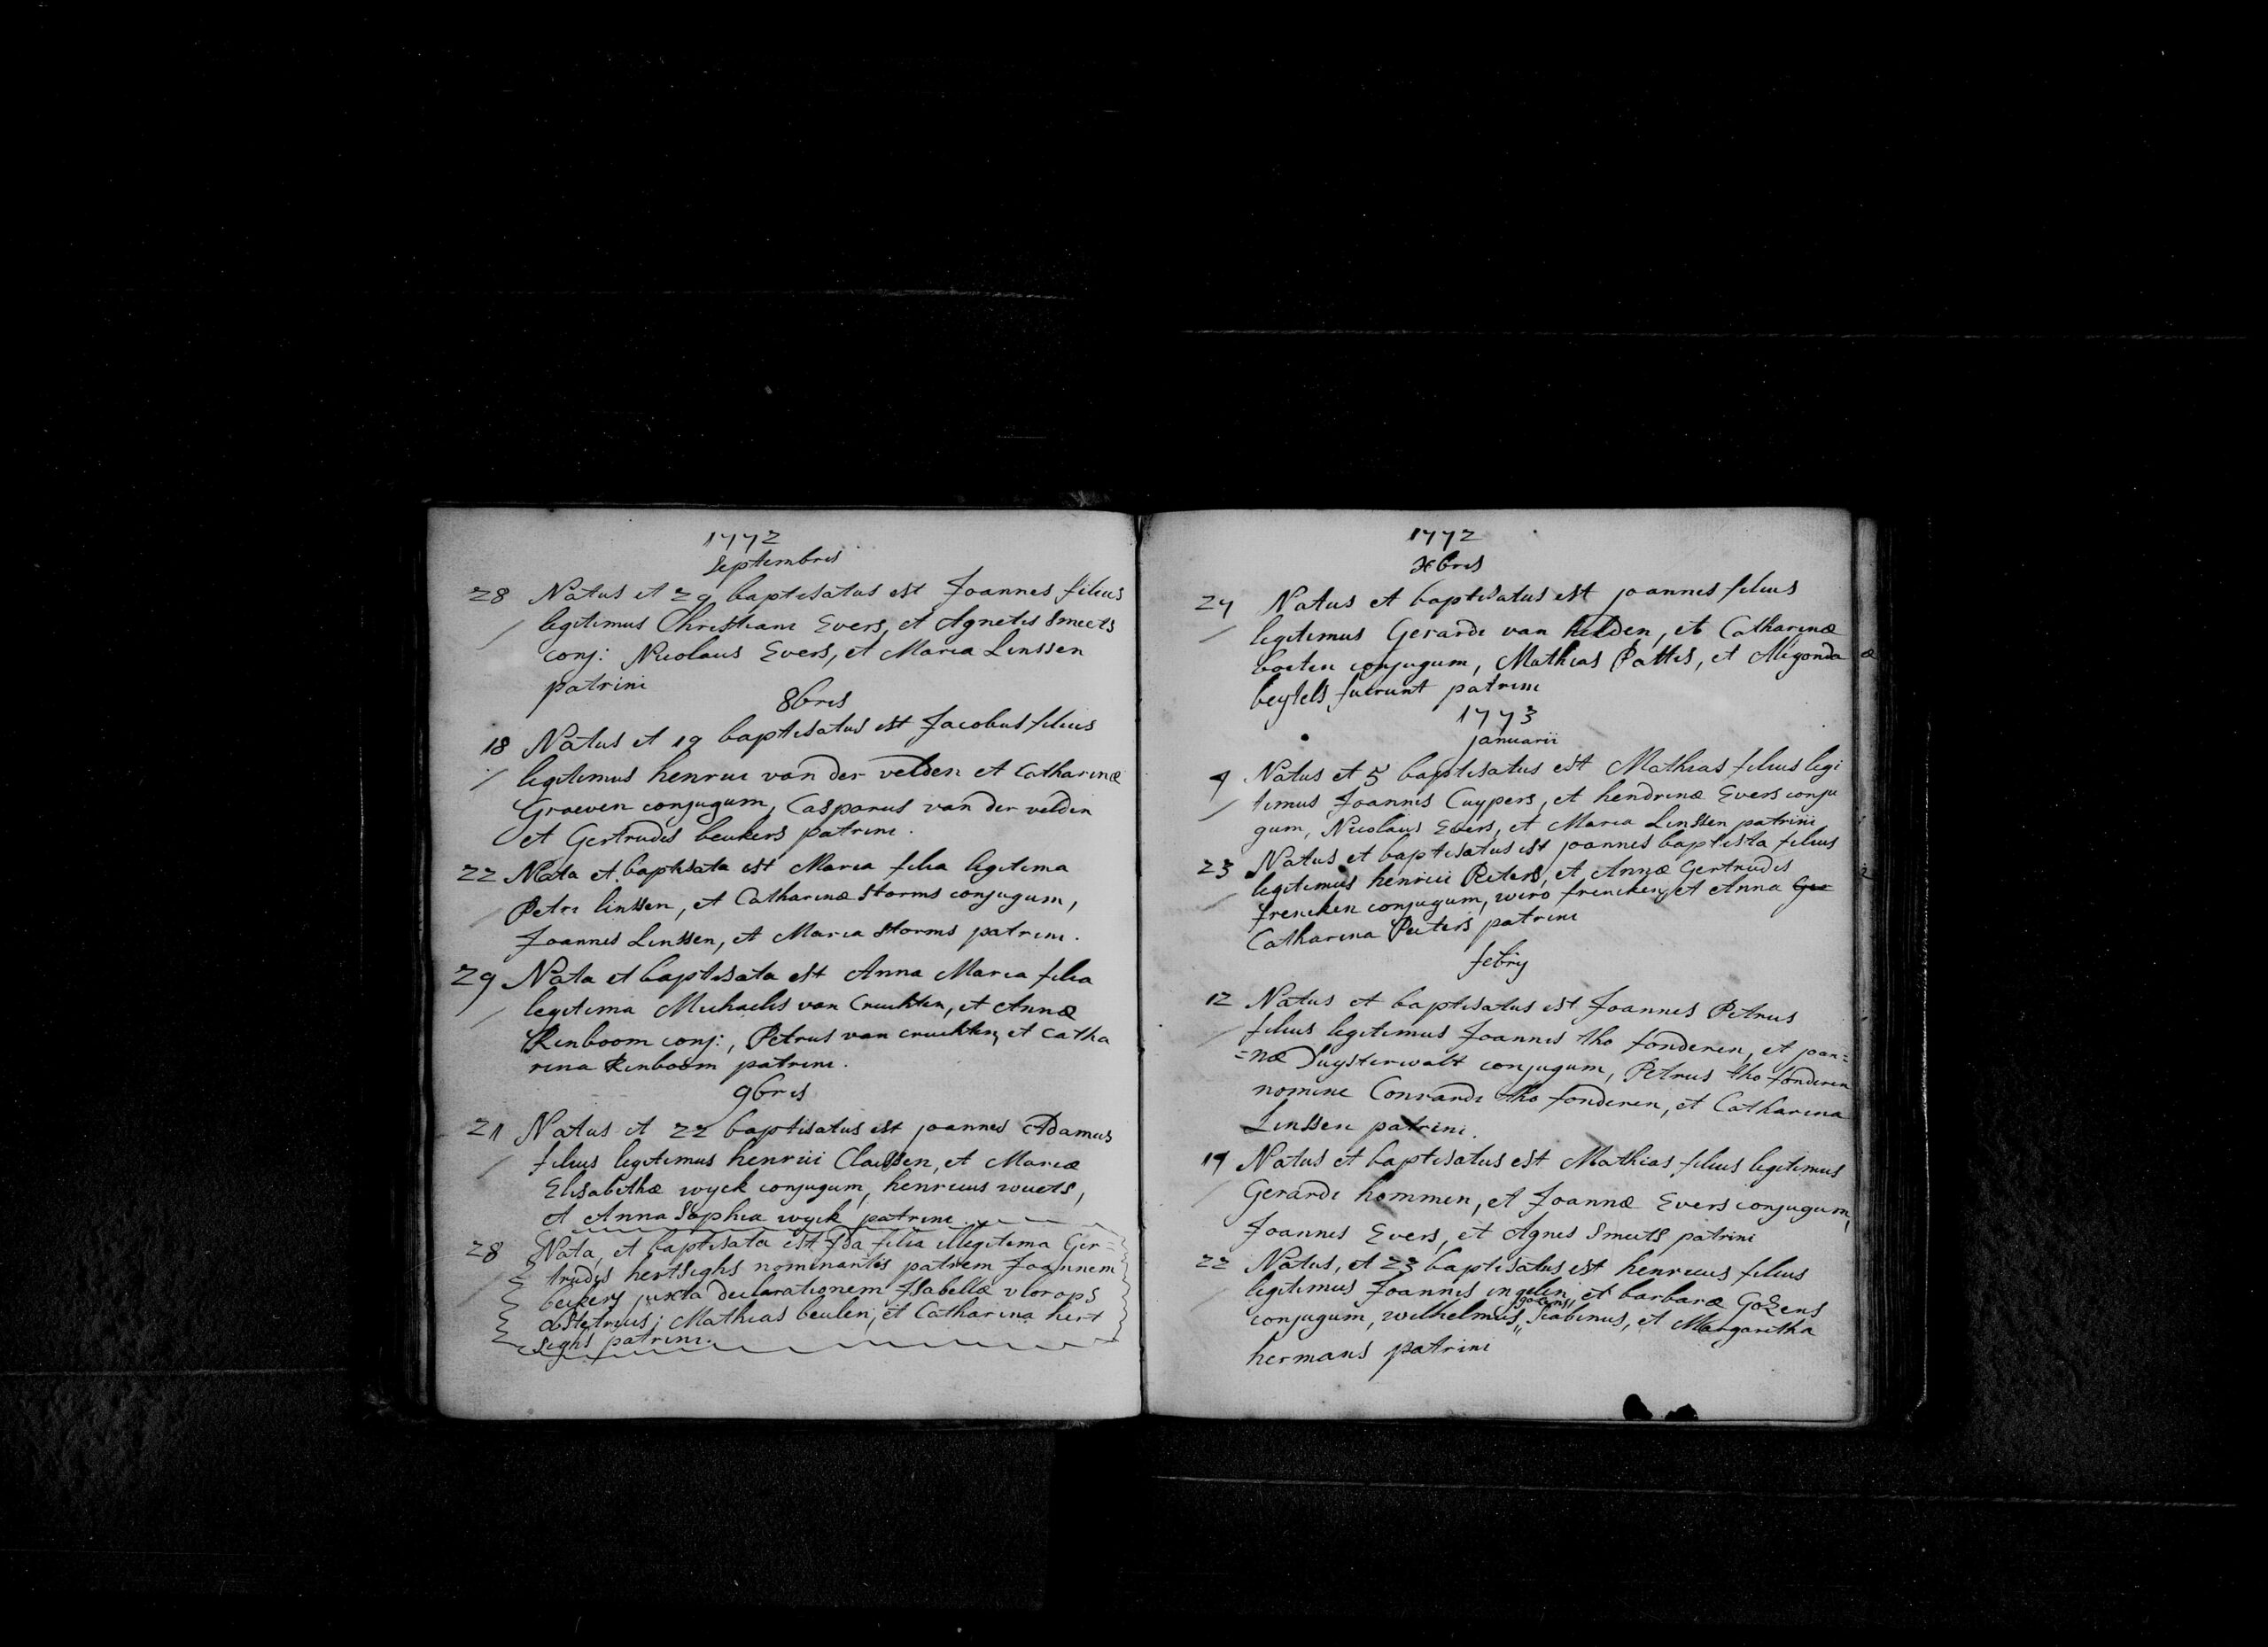 1772
Septembris
28 Natus et 29 baptisatus est Joannes filius
legitimus Christiani Evers, et Agnetis Smeets
conj: Nicolaus Evers, et Maria Linssen
patrini
8bris
18 Natus et 19 baptisatus est Jacobus filius
legitimus henrici van der velden et Catharinæ
Graeven conjugum, Casparus van der velden
et Gertrudis beukers patrini.
22 Nata et baptisata est Maria filia legitima
Petri linssen, et Catharinæ Storms conjugum,
Joannes Linssen, et Maria Storms patrini.
29 Nata et baptisata est Anna Maria filia
legitima Michaelis van Cruchten, et Annæ
Rinboom conj:, Petrus van cruchten, et Catha
rina Rinboom patrini.
9bris
21 Natus et 22 baptisatus est joannes Adamus
filius legitimus henrici Claessen, et Mariæ
Elisabethæ wyck conjugum, henricus wuets,
et Anna Sophia wyck patrini
28 Nata, et baptisata est Ida filia illegitima Ger=
trudis hertsighs nominantis patrem Joannem
beckers juxta declarationem Isabellæ vlorops
obstetricis; Mathias beulen, et Catharina hert
sighs patrini.
1772
Xbris
24 Natus et baptisatus est joannes filius
legitimus Gerardi van helden, et Catharinæ
boeten conjugum, Mathias Pattis, et Aligonda
beystels fuerunt patrini
1773
januarii
4 Natus et 5 baptisatus est Mathias filius legi
timus Joannis Cuypers, et hendrinæ Evers conju
gum, Nicolaus Evers, et Maria Linssen patrini
23 Natus et baptisatus est joannes baptista filius
legitimus henrici Peters, et Annæ Gertrudis
frencken conjugum, wiro frencken, et Anna Ger
Catharina Peeters patrini
febrij
12 Natus et baptisatus est Joannes Petrus
filius legitimus Joannis tho fonderen, et joan=
=næ Duysterwalt conjugum, Petrus tho fonderen
nomine Conrardi tho fonderen, et Catharina
Linssen patrini.
14 Natus et baptisatus est Mathias filius legitimus
Gerardi hommen, et Joannæ Evers conjugum,
Joannes Evers, et Agnes Smeets patrini
22 Natus, et 23 baptisatus est henricus filius
legitimus Joannis ingelen, et barbaræ Gozens
conjugum, wilhelmus "gozens" Scabinus, et Margaritha
hermans patrini